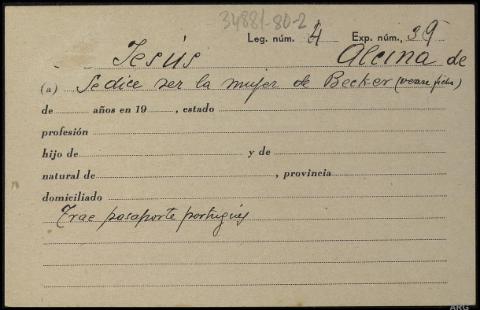 34881-80-2
Leg. núm. 4 Exp. núm. 39
Jesús Alcina de
(a) Se dice ser la mujer de Becker (vease ficha)
de años en 19 , estado
profesión
hijo de y de
natural de , provincia
domiciliado
Trae pasaporte portugués
ARG